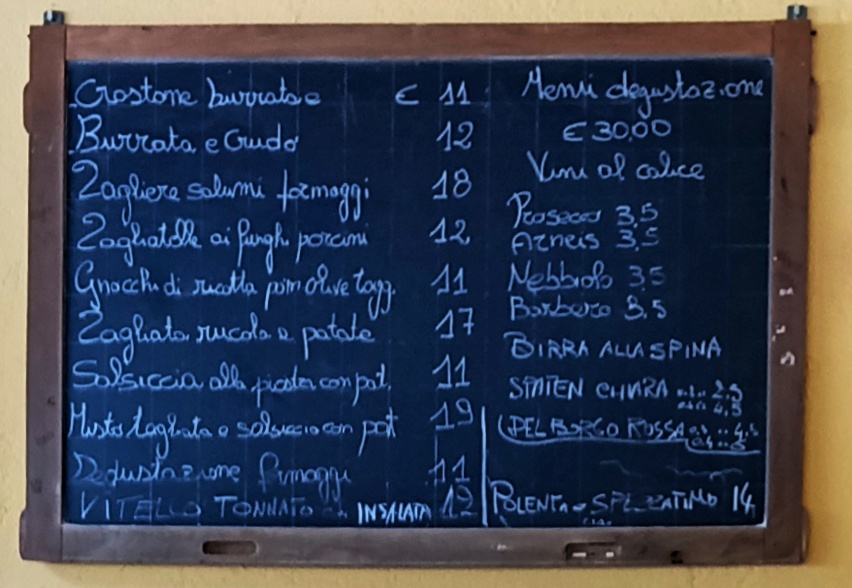 Crostone burrata e € 11
Burrata e Crudo 12
Tagliere salumi formaggi 18
Tagliatelle ai funghi porcini 12
Gnocchi di ricotta pom olive tagg. 11
Tagliata rucola e patate 17
Salsiccia alla piastra con pat. 11
Misto tagliata e salsiccia con pat 19
Degustazione formaggi 11
VITELLO TONNATO INSALATA 12
Menù degustazione
€ 30,00
Vini al calice
Prosecco 3,5
Arneis 3,5
Nebbiolo 3,5
Barbera 3,5
BIRRA ALLA SPINA
CHIARA 2,5
4,5
DEL BORGO ROSSA
POLENTA e SPEZZATINO 14